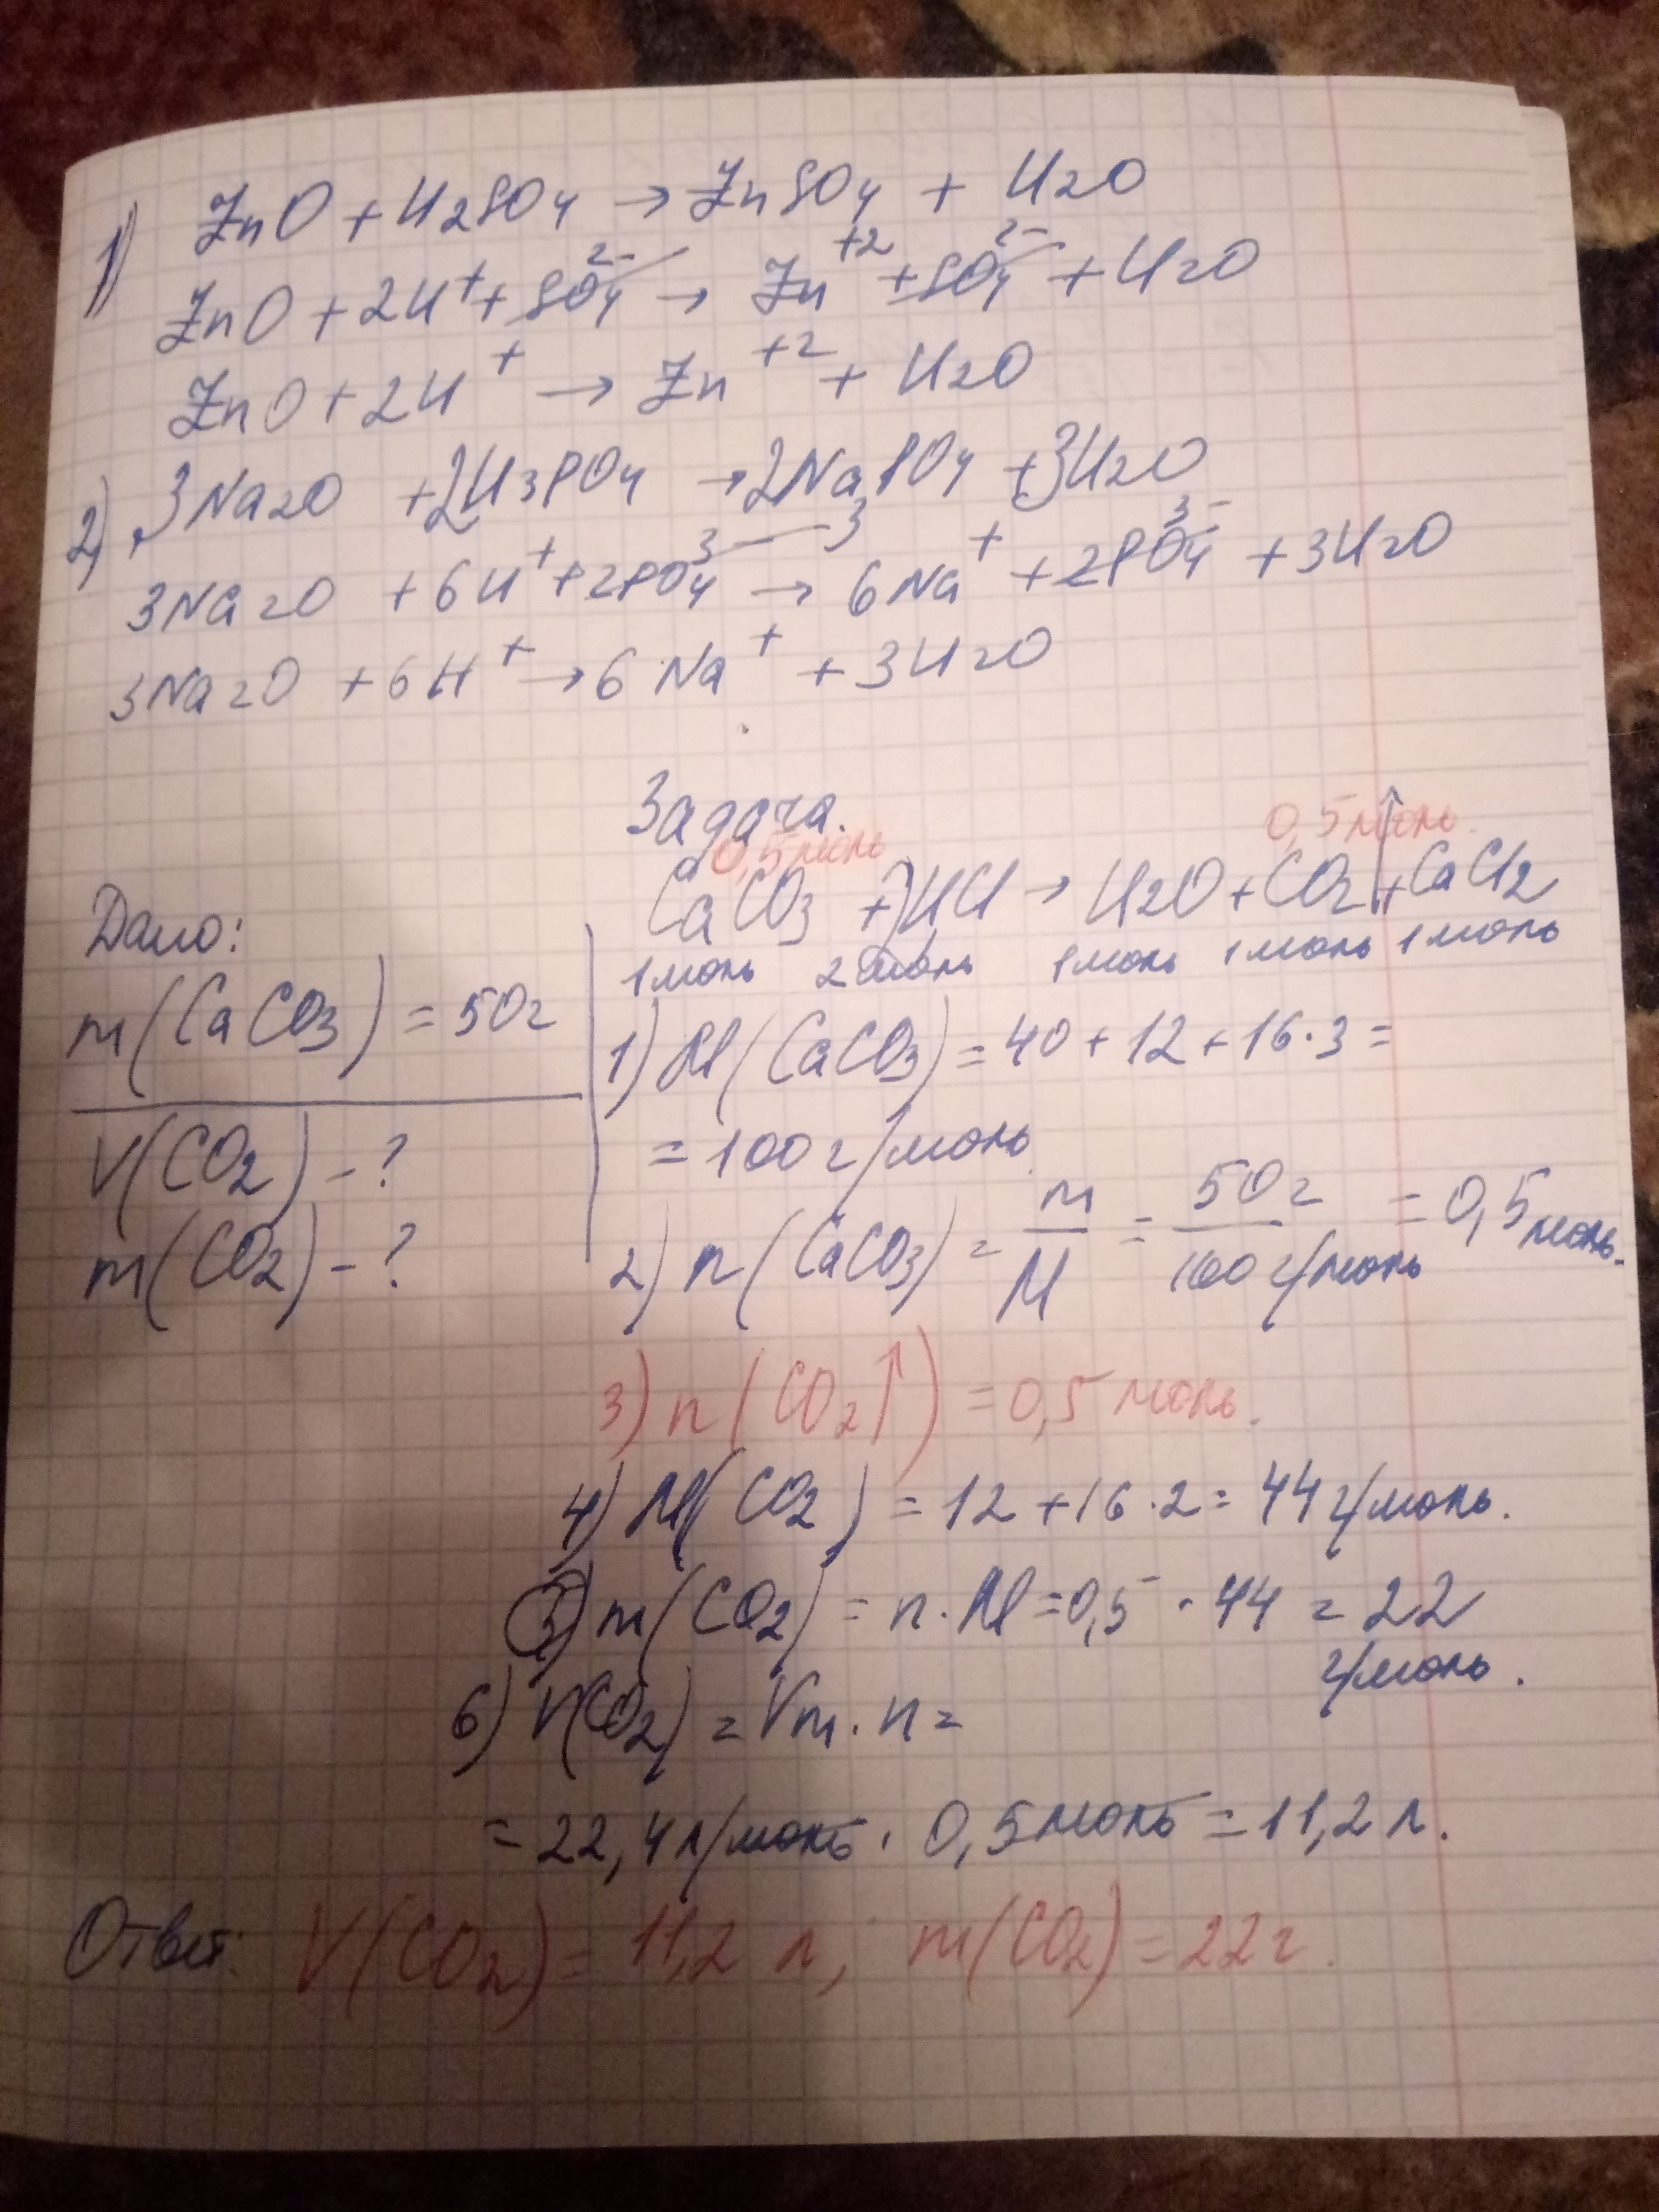 1) ZnO + H2SO4 → ZnSO4 + H2O
ZnO + 2H⁺ + SO4²⁻ → Zn⁺² + SO4²⁻ + H2O
ZnO + 2H⁺ → Zn⁺² + H2O
2) 3Na2O + 2H3PO4 → 2Na3PO4 + 3H2O
3Na2O + 6H⁺ + 2PO4³⁻ → 6Na⁺ + 2PO4³⁻ + 3H2O
3Na2O + 6H⁺ → 6Na⁺ + 3H2O
Задача.
0,5 моль 0,5 моль.
CaCO3 + 2HCl → H2O + CO2↑ + CaCl2
1 моль 2 моль 1 моль 1 моль 1 моль
Дано:
m(CaCO3) = 50г
V(CO2) - ?
m(CO2) - ?
1) M(CaCO3) = 40 + 12 + 16·3 =
= 100 г/моль.
2) n(CaCO3) = m/M = 50г/100г/моль = 0,5 моль.
3) n(CO2↑) = 0,5 моль.
4) M(CO2) = 12 + 16·2 = 44 г/моль.
5) m(CO2) = n·M = 0,5 · 44 = 22
г/моль.
6) V(CO2) = Vm·n =
= 22,4 л/моль · 0,5 моль = 11,2 л.
Ответ: V(CO2) = 11,2 л; m(CO2) = 22г.